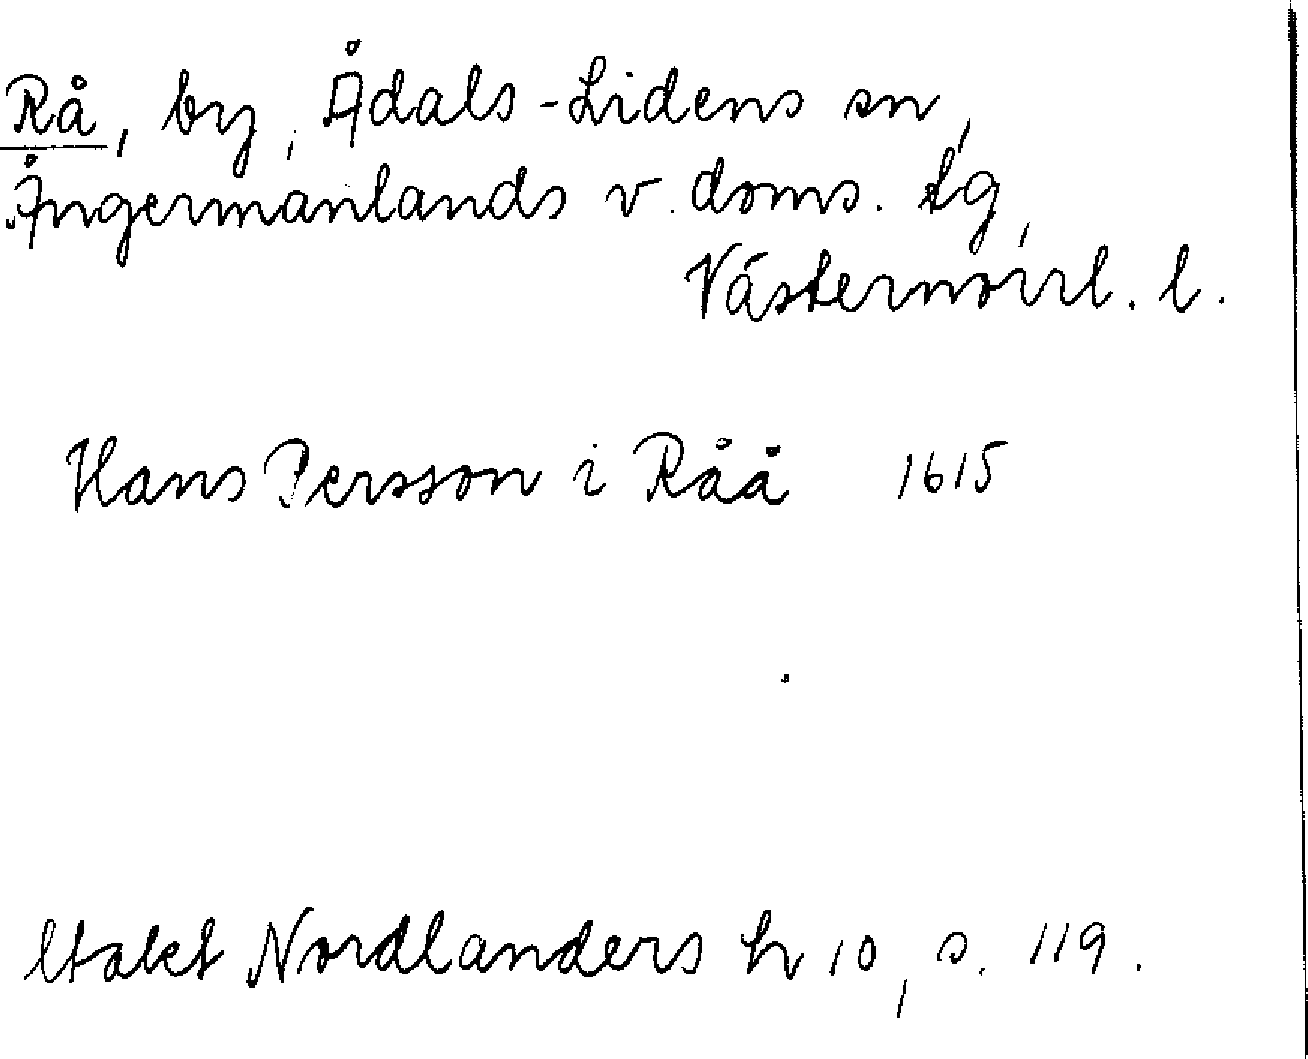 Rå, by, Ådals-Lidens sn,
Ångermanlands v. doms. tg,
Västernorrl. l.
Hans Persson i Råå 1615
Nordlanders h 10, s. 119.